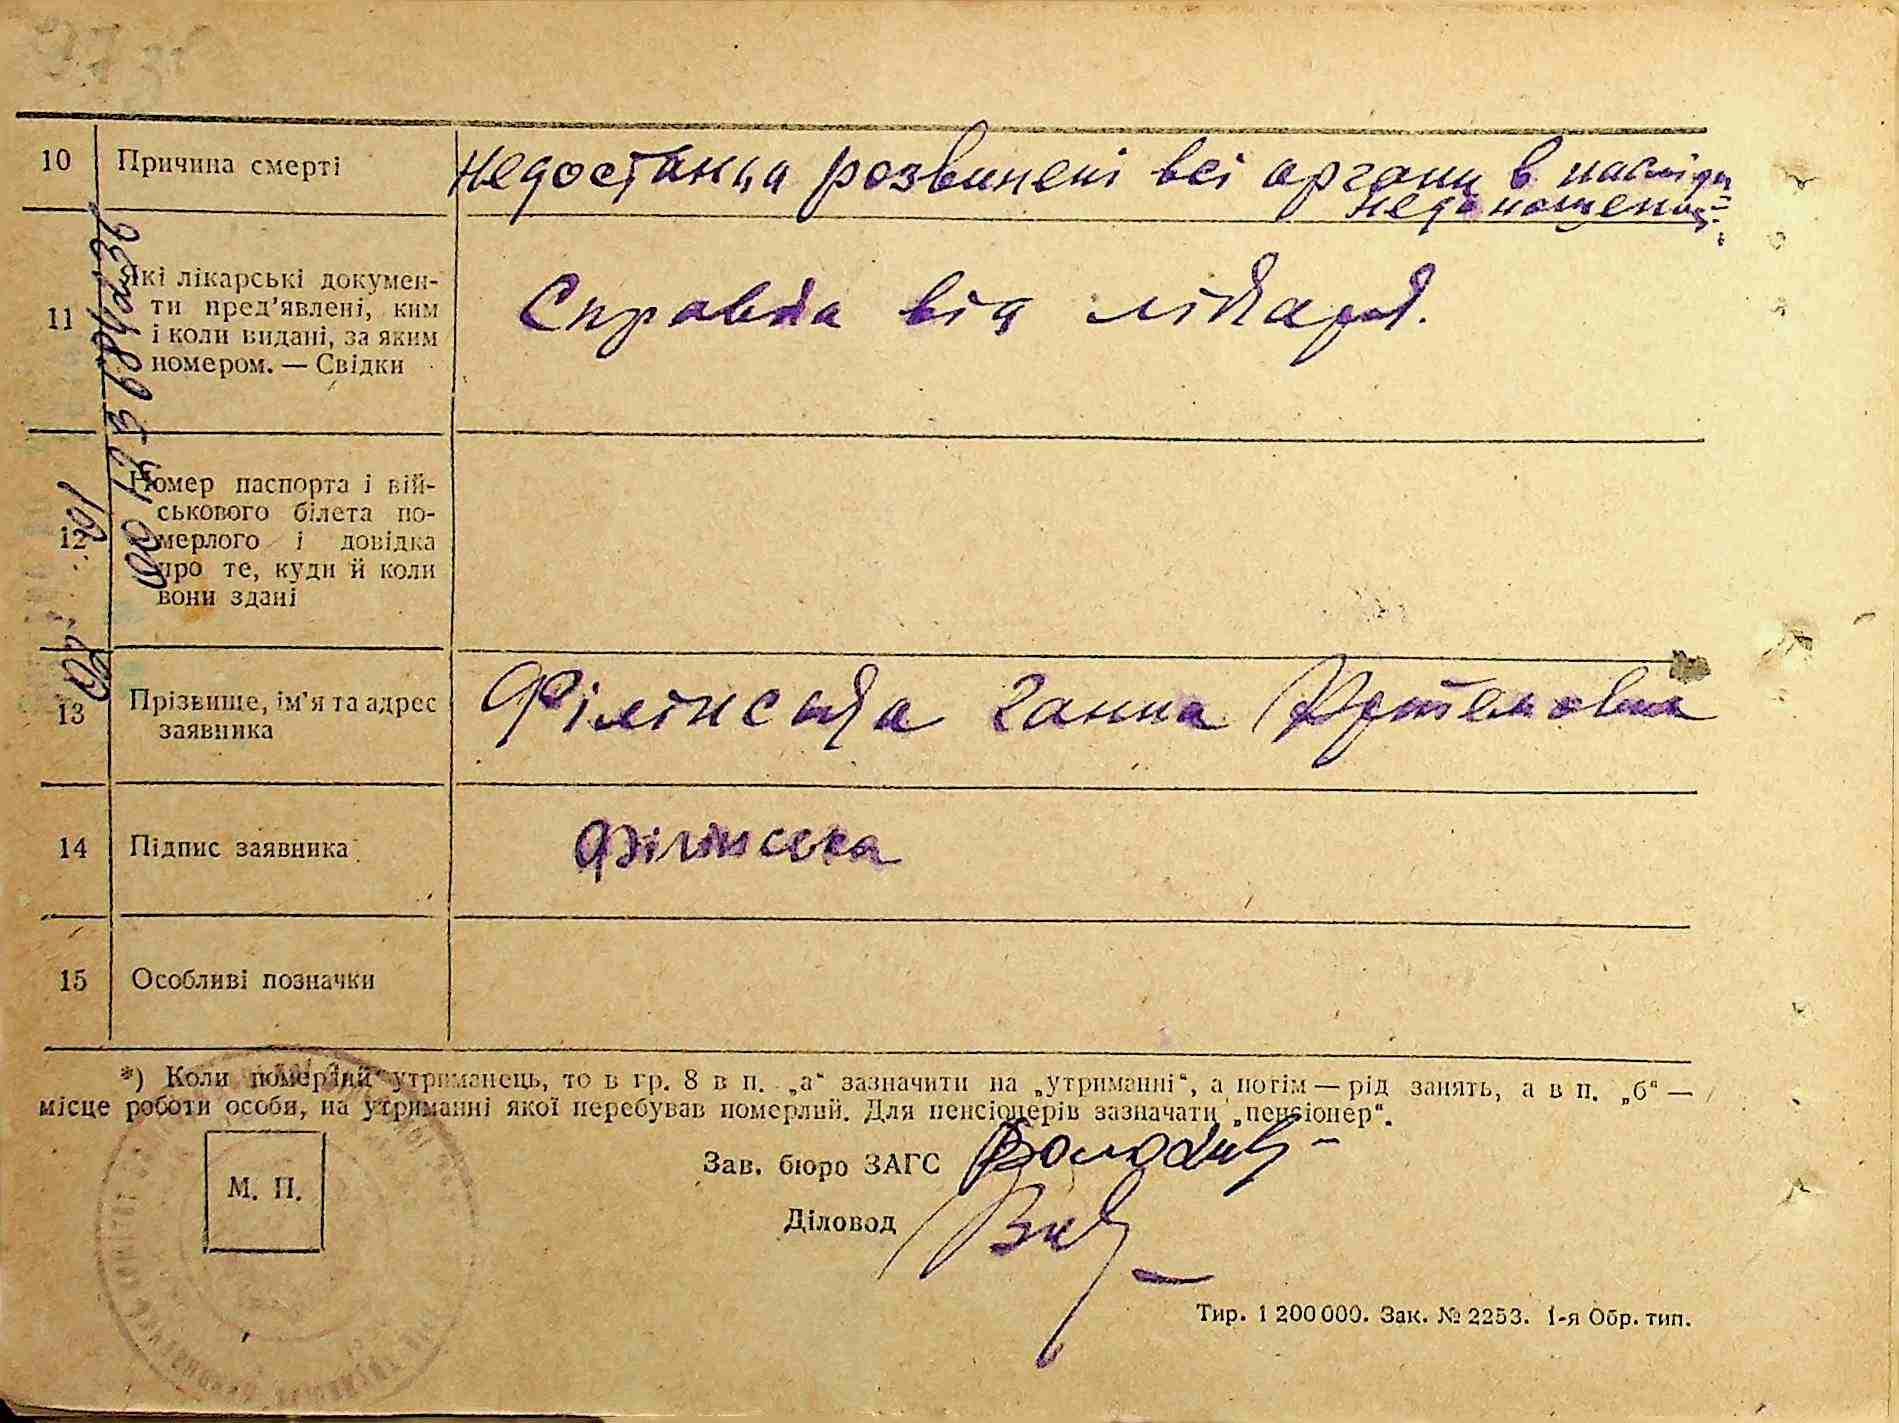 10 Причина смерті Недостанца розвинені всі органи в наслідки
недоношеност
11 Які лікарські докумен-
ти пред'явлені, ким
і коли видані, за яким
номером. — Свідки
Справка від лікаря.
12 Номер паспорта і вій-
ськового білета по-
мерлого і довідка
про те, куди й коли
вони здані
13 Прізвище, ім'я та адрес
заявника
Філінська Ганна Артемовна
14 Підпис заявника Філінська
15 Особливі позначки
*) Коли померлий утриманець, то в гр. 8 в п. „а" зазначити на „утриманні", а потім — рід занять, а в п. „б" —
місце роботи особи, на утриманні якої перебував померлий. Для пенсіонерів зазначати „пенсіонер".
М. П.
Зав. бюро ЗАГС
Діловод
Тир. 1 200 000. Зак. № 2253. 1-я Обр. тип.